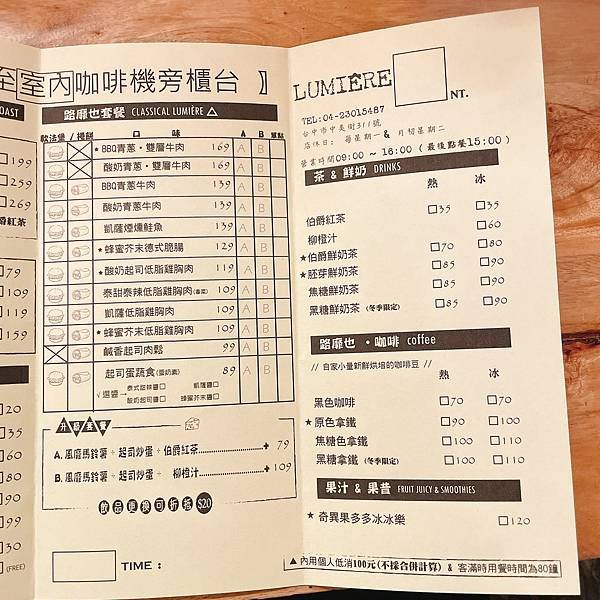 至室內咖啡機旁櫃台 】
OAST
199
259
269
伯爵紅茶
79
109
119
159
20
35
60
80
90
99
30
(FREE)
路靡也套餐 CLASSICAL LUMIÈRE △
軟法堡 / 燒餅 口味 A B 單點
★ BBQ青蔥・雙層牛肉 169 A B
酸奶青蔥・雙層牛肉 169 A B
BBQ青蔥牛肉 139 A B
酸奶青蔥牛肉 139 A B
凱薩煙燻鮭魚 139 A B
★ 蜂蜜芥末德式脆腸 129 A B
★ 酸奶起司低脂雞胸肉 119 A B
泰甜泰辣低脂雞胸肉 109 A B
凱薩低脂雞胸肉 109 A B
★ 蜂蜜芥末低脂雞胸肉 109 A B
鹹香起司肉鬆 99 A B
起司蛋蔬食(蛋奶素) 89 A B
√ 選醬→ 泰式甜辣醬□ 凱薩醬□
酸奶起司醬□ 蜂蜜芥末醬□
升級套餐
A. 風靡馬鈴薯 + 起司炒蛋 + 伯爵紅茶 + 79
B. 風靡馬鈴薯 + 起司炒蛋 + 柳橙汁 + 109
飲品更換可折抵 $20
TIME :
LUMIÈRE NT.
TEL:04-23015487
台中市中美街311號
店休日: 每星期一 & 月初星期二
營業時間09:00 ~ 16:00 ( 最後點餐15:00 )
茶 & 鮮奶 DRINKS
熱 冰
伯爵紅茶 □35 □35
柳橙汁 □60
★伯爵鮮奶茶 □70 □80
★胚芽鮮奶茶 □85 □90
焦糖鮮奶茶 □85 □90
黑糖鮮奶茶 (冬季限定) □85 □90
路靡也・咖啡 coffee
// 自家小量新鮮烘焙的咖啡豆 //
熱 冰
黑色咖啡 □70 □70
★ 原色拿鐵 □90 □100
焦糖色拿鐵 □100 □110
黑糖拿鐵 (冬季限定) □100 □110
果汁 & 果昔 FRUIT JUICY & SMOOTHIES
★ 奇異果多多冰冰樂 □120
▲ 內用個人低消100元(不採合併計算) & 客滿時用餐時間為80鐘